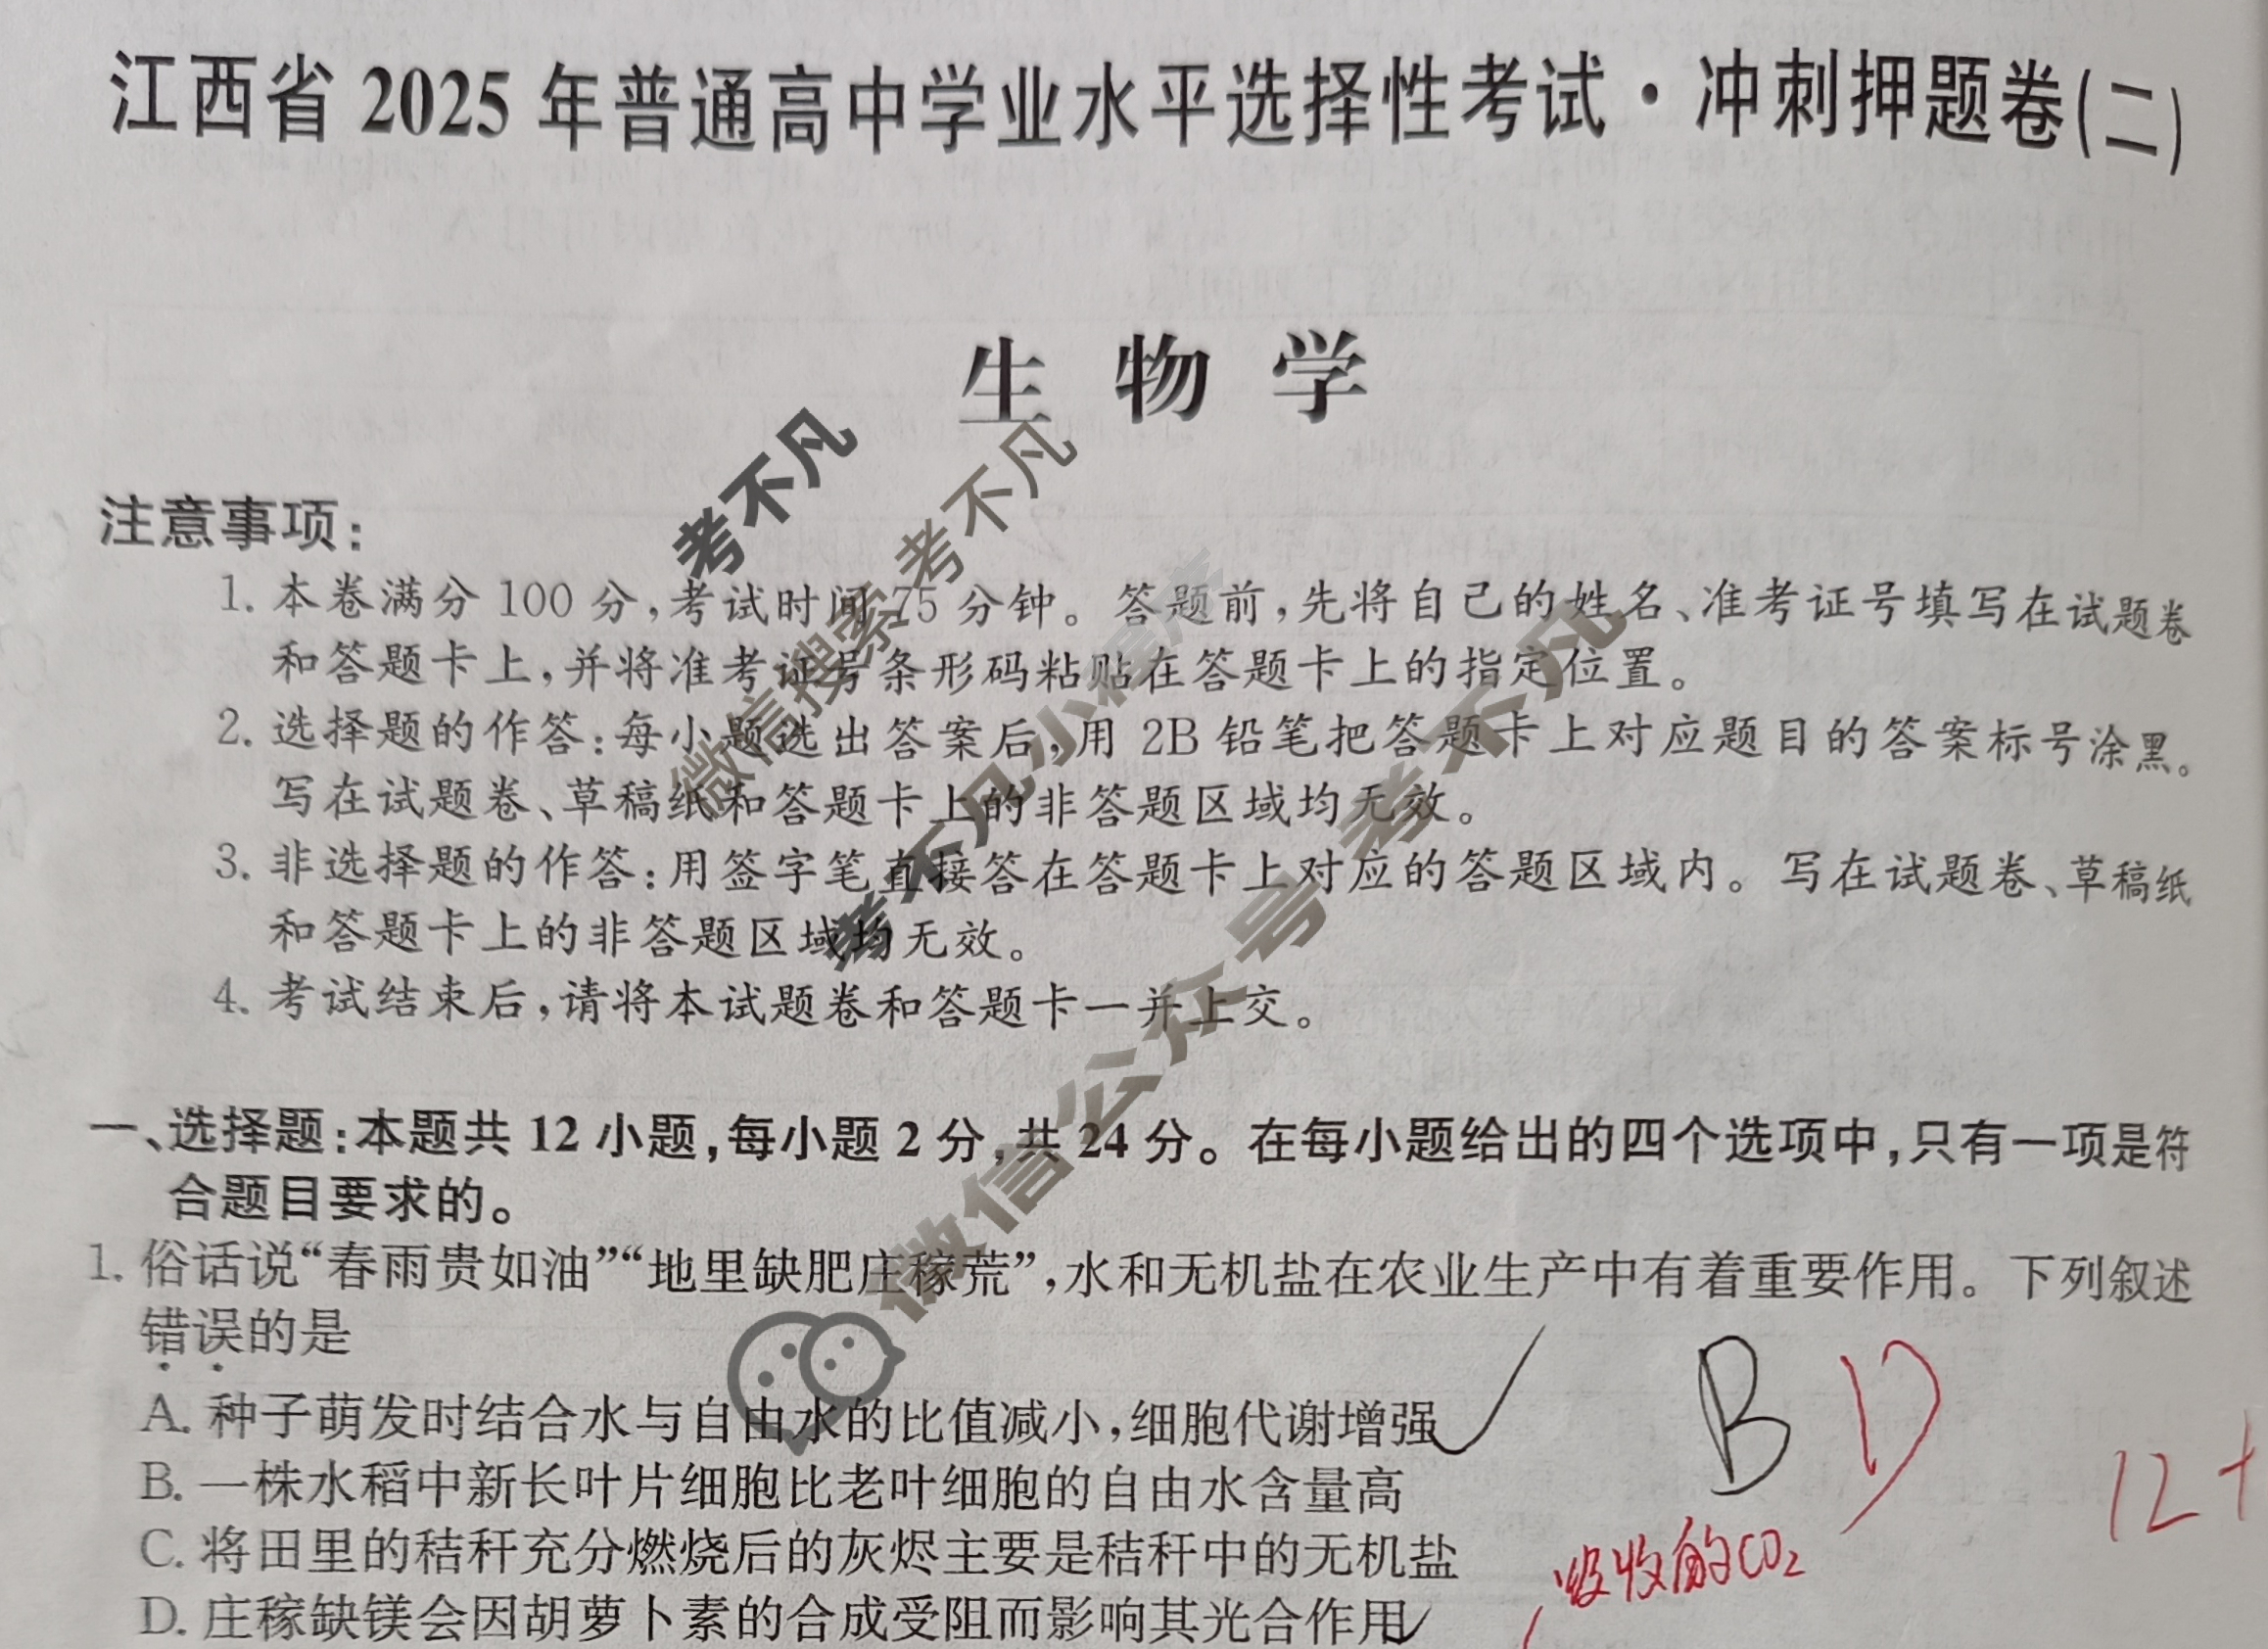 江西省 2025 年普通高中学业水平选择性考试·冲刺押题卷(二)
生物学
注意事项:
1. 本卷满分 100 分,考试时间 75 分钟。答题前,先将自己的姓名、准考证号填写在试题卷
和答题卡上,并将准考证号条形码粘贴在答题卡上的指定位置。
2. 选择题的作答:每小题选出答案后,用 2B 铅笔把答题卡上对应题目的答案标号涂黑。
写在试题卷、草稿纸和答题卡上的非答题区域均无效。
3. 非选择题的作答:用签字笔直接答在答题卡上对应的答题区域内。写在试题卷、草稿纸
和答题卡上的非答题区域均无效。
4. 考试结束后,请将本试题卷和答题卡一并上交。
一、选择题:本题共 12 小题,每小题 2 分,共 24 分。在每小题给出的四个选项中,只有一项是符
合题目要求的。
1. 俗话说“春雨贵如油”“地里缺肥庄稼荒”,水和无机盐在农业生产中有着重要作用。下列叙述
错误的是
A. 种子萌发时结合水与自由水的比值减小,细胞代谢增强
B. 一株水稻中新长叶片细胞比老叶细胞的自由水含量高
C. 将田里的秸秆充分燃烧后的灰烬主要是秸秆中的无机盐
D. 庄稼缺镁会因胡萝卜素的合成受阻而影响其光合作用
B D
12+
吸收的CO₂
考不凡
微信搜索 考不凡
考不凡小程序
微信公众号 考不凡